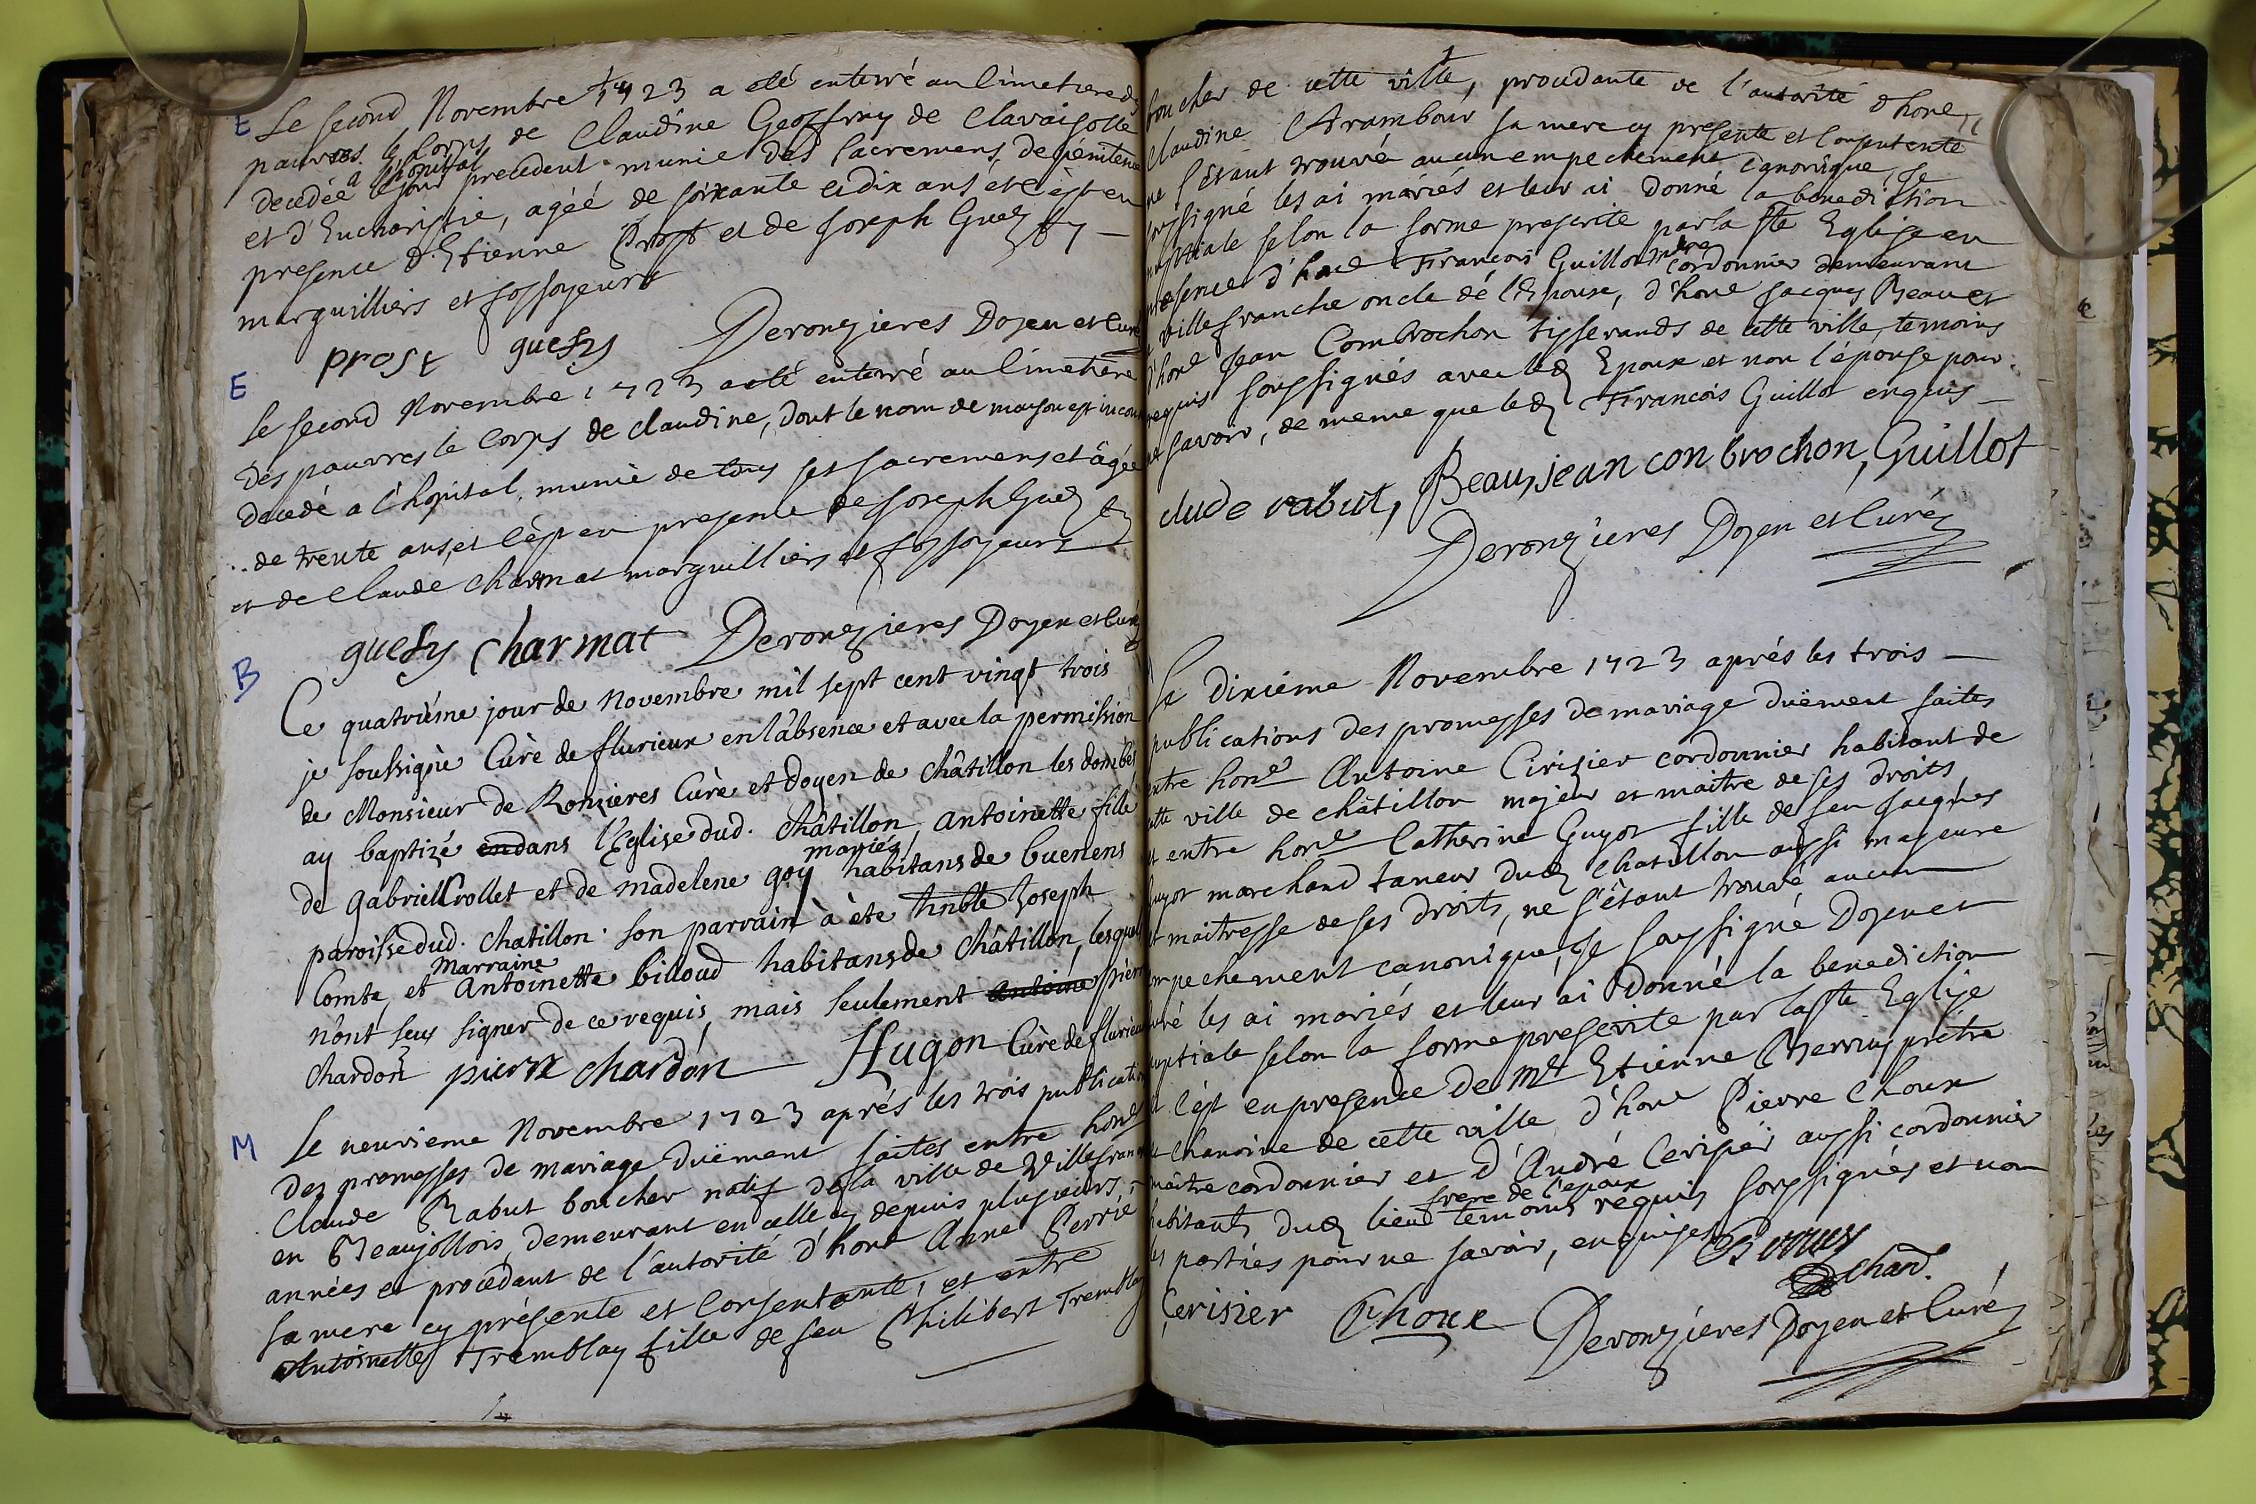 E Le second Novembre 1723 a eté enterré au Cimetiere des
pauvres le corps de Claudine Geoffray de Clavaisolle
decedée a l'hopital le jour precedent munie des sacremens de penitence
et d'Eucharistie, agéé de soixante et dix ans et c'est en
presence d'Etienne Prost et de Joseph Guesty
marguilliers et fossoyeurs
prost guesty Deronzieres Doyen et Curé
E Le second Novembre 1723 a eté enterré au Cimetiere
des pauvres le Corps de claudine, dont le nom de maison est inconu
decedé a l'hopital, munie de tous ses sacremens et âgée
de trente ans, et c'est en presence de Joseph Guesty
et de Claude charmat marguilliers et fossoyeurs
guesty charmat Deronzieres Doyen et Curé
B Ce quatriéme jour de novembre mil sept cent vingt trois
je soussigné Curé de flurieux en l'absence et avec la permission
de Monsieur de Ronzieres Curé et doyen de châtillon les dombes
ay baptizé en dans l'Eglise dud. châtillon, antoinette fille
de gabriel Crollet et de madelene goy mariez habitans de buenens
paroisse dud. chatillon. son parrain à éte Joseph
Comte, et Marraine antoinette billoud habitans de châtillon, lesquels
n'ont seus signer de ce requis mais seulement antoine pierre
chardon pierre chardon Hugon Curé de flurieux
M Le neuvieme Novembre 1723 aprés les trois publications
des promesses de mariage duëment faites entre hone
Claude Rabut boucher natif de la ville de Villefranche
en Beaujollois, demeurant en celle cy depuis plusieurs
années et procedant de l'autorité d'hone Anne Perrié
sa mere cy présente et Consentante, et entre
Antoinette Tremblay fille de feu Philibert Tremblay
boucher de cette ville, procedante de l'autorité d'hone
Claudine Arambour sa mere cy presente et consentente
ne s'étant trouvé aucun empechement canonique, Je
soussigné les ai mariés et leur ai donné la benediction
nuptiale selon la forme prescrite par la Ste Eglise en
presence d'hone François Guillot cordonnier demeurant
a villefranche oncle de l'Epoux, d'hone Jacques Beau et
d'hone Jean Combrochon tisserands de cette ville, temoins
requis soussignés avec led. Epoux et non l'épouse pour
ne savoir, de meme que led. François Guillot enquis
clude rabut, Beau, jean conbrochon, Guillot
Deronzieres Doyen et Curé
Le dixiéme Novembre 1723 aprés les trois
publications des promesses de mariage duëment faites
entre hone Antoine Cirizier cordonnier habitant de
cette ville de châtillon majeur et maitre de ses droits
et entre hone Catherine Guyot fille de feu Jacques
Guyot marchand taneur dud. Chatillon aussi majeure
et maitresse de ses droits, ne s'étant trouvé aucun
empechement canonique, Je soussigné Doyen et
Curé les ai mariés et leur ai donné la benediction
nuptiale selon la forme prescrite par la Ste Eglise
et c'est en presence de Mre Etienne Berruy prétre
et Chanoine de cette ville d'hone Pierre Choux
maitre cordonnier et d'André Cerisier aussi cordonnier
habitants dud. lieu frere de l'epoux temoins requis soussignés et non
les parties pour ne savoir, enquises Berruy
chan.
Cerisier Choux Deronziéres Doyen et Curé